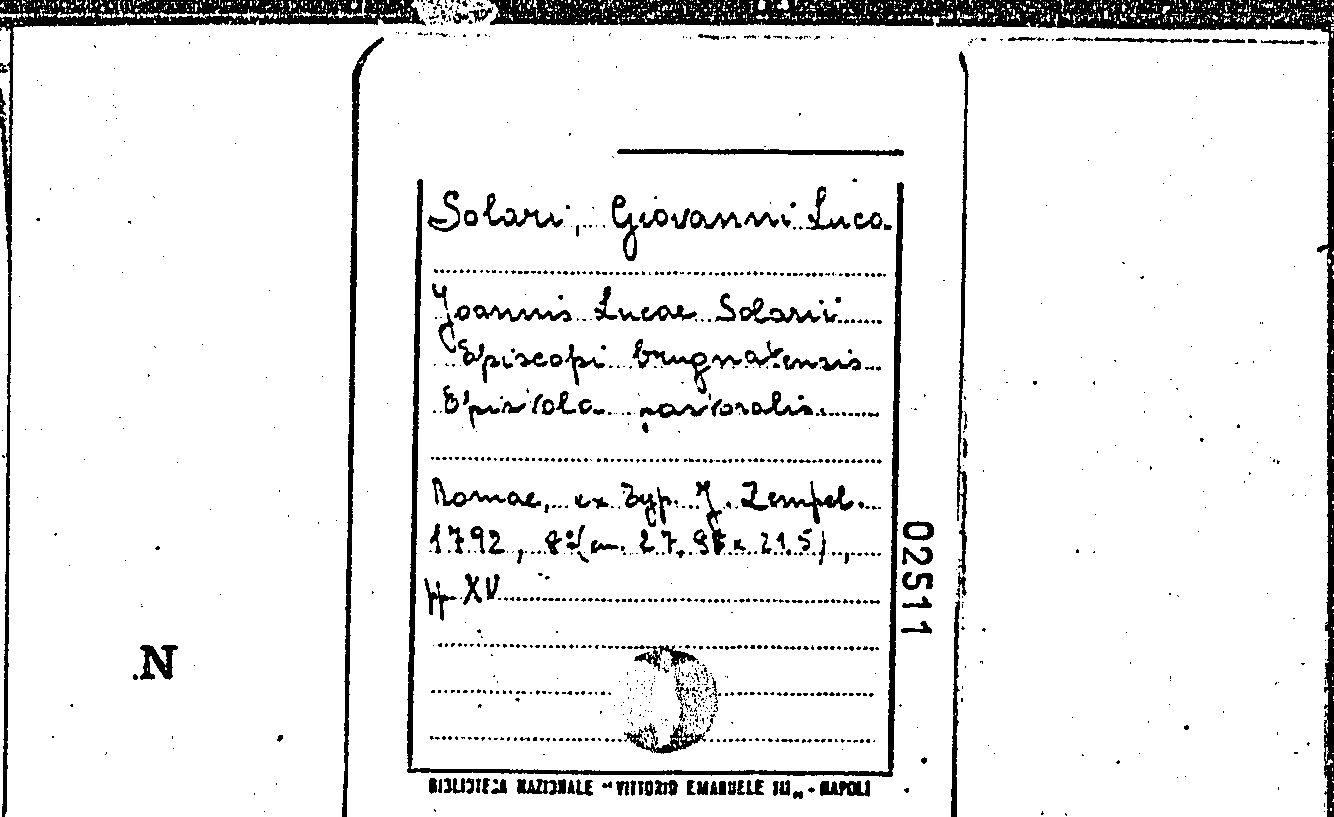 Solari, Giovanni Luca
Joannis Lucae Solarii
Episcopi brugnatensis
Epistola pastoralis.
Romae, ex Typ. J. Zempel.
1792, 8º (cm. 27,95 x 21,5),
pp. XV
02511
.N
BIBLIOTECA NAZIONALE "VITTORIO EMANUELE III" - NAPOLI